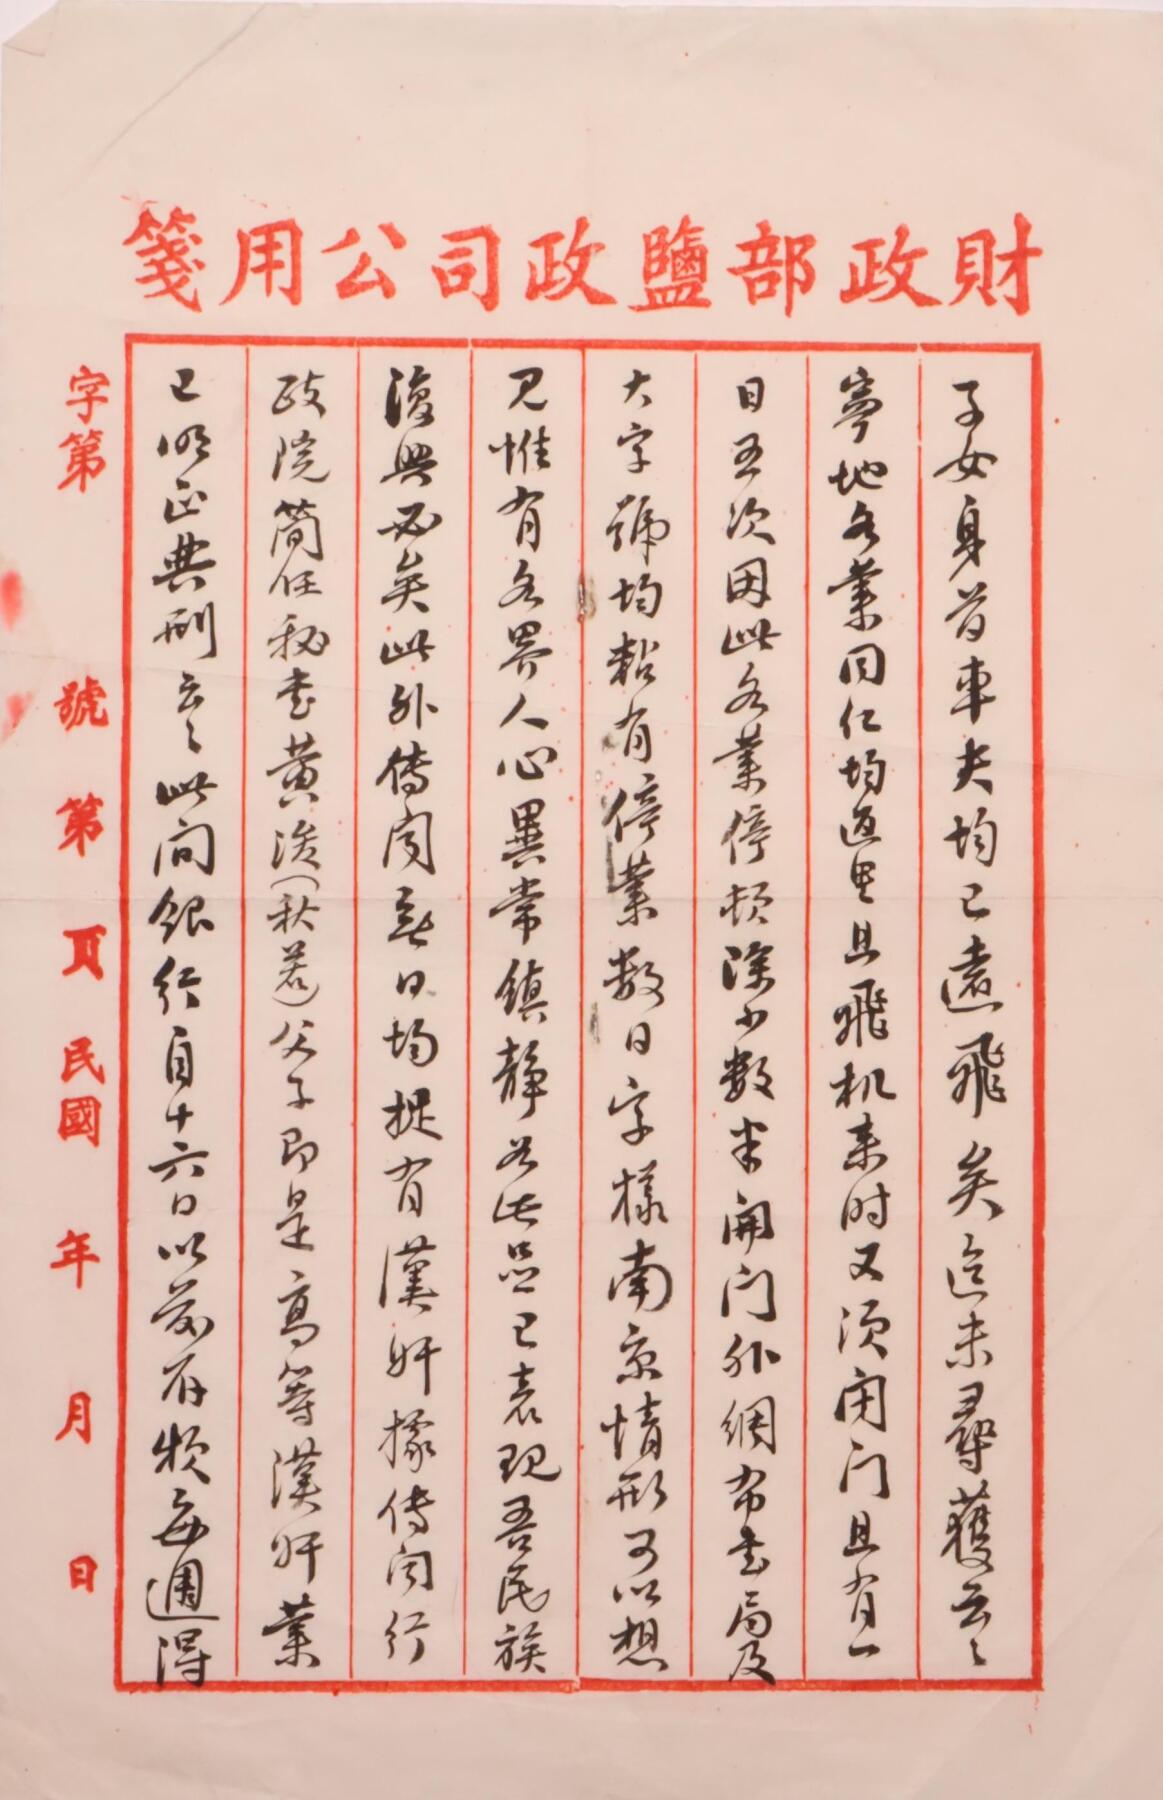 財政部鹽政司公用箋
子女身首車夫均已遠飛矣迄未尋獲云云
寧地各業同仁均返里且飛机来时又须闭门且有一
日五次因此各業停頓除少數半開门外綢布書局及
大字號均粘有停業數日字樣南京情形可以想
見惟有各界人心異常鎮靜若此益已表現吾民族
復興必矣此外傳聞每日均捉有漢奸據傳聞行
政院简任秘書黄濬（秋岳）父子即是高等漢奸業
已明正典刑云云此间銀行自十六日以前存款每週得
字第
號
第
頁
民國
年
月
日